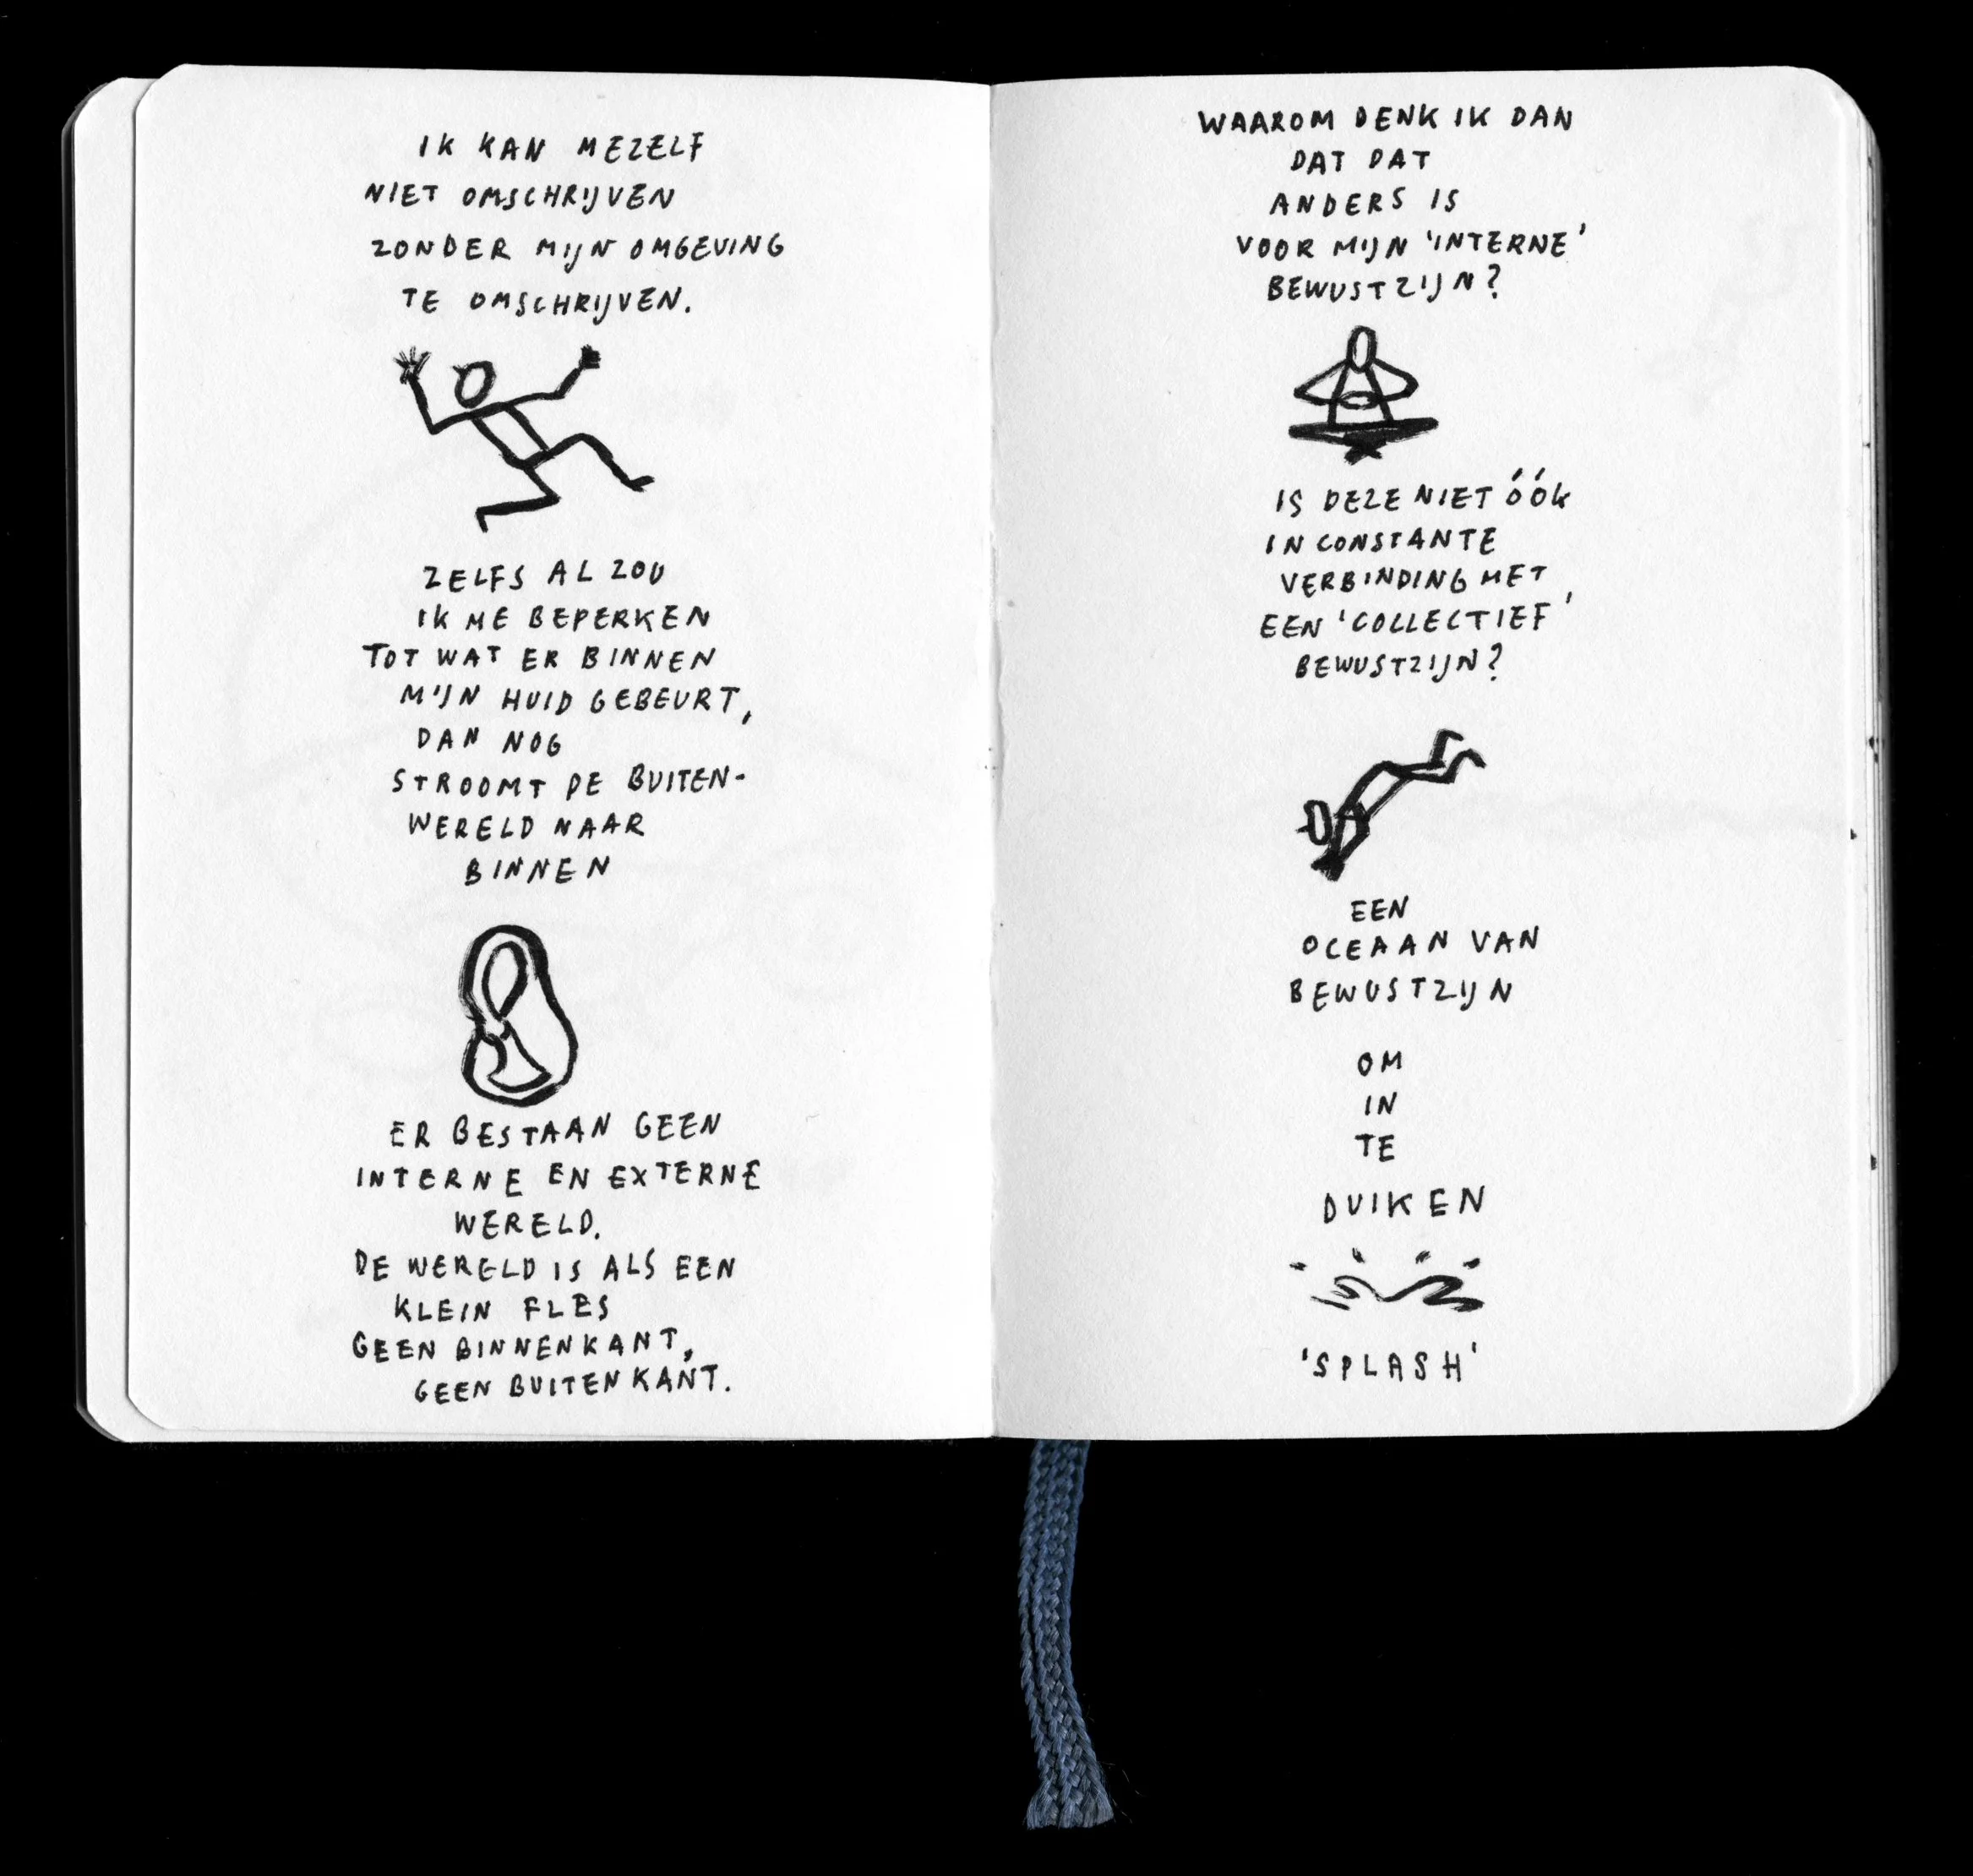 IK KAN MEZELF
NIET OMSCHRIJVEN
ZONDER MIJN OMGEVING
TE OMSCHRIJVEN.
ZELFS AL ZOU
IK ME BEPERKEN
TOT WAT ER BINNEN
MIJN HUID GEBEURT,
DAN NOG
STROOMT DE BUITEN-
WERELD NAAR
BINNEN
ER BESTAAN GEEN
INTERNE EN EXTERNE
WERELD.
DE WERELD IS ALS EEN
KLEIN FLES
GEEN BINNENKANT,
GEEN BUITENKANT.
WAAROM DENK IK DAN
DAT DAT
ANDERS IS
VOOR MIJN 'INTERNE'
BEWUSTZIJN?
IS DEZE NIET ÓÓK
IN CONSTANTE
VERBINDING MET
EEN 'COLLECTIEF'
BEWUSTZIJN?
EEN
OCEAAN VAN
BEWUSTZIJN
OM
IN
TE
DUIKEN
'SPLASH'